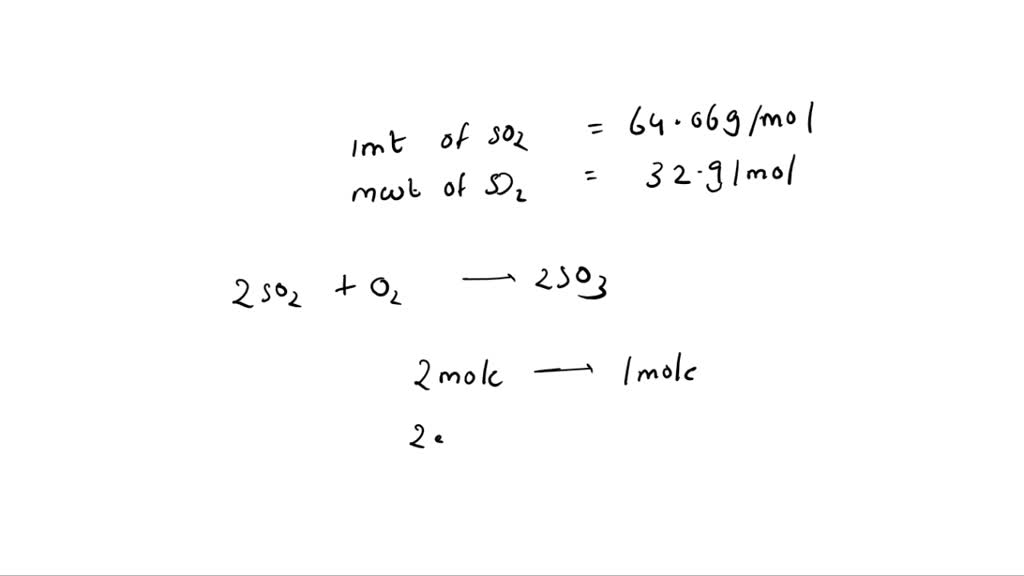 1mt of SO2 = 64.06g/mol
mwt of SO2 = 32.g/mol
2SO2 + O2 → 2SO3
2mole → 1mole
2.